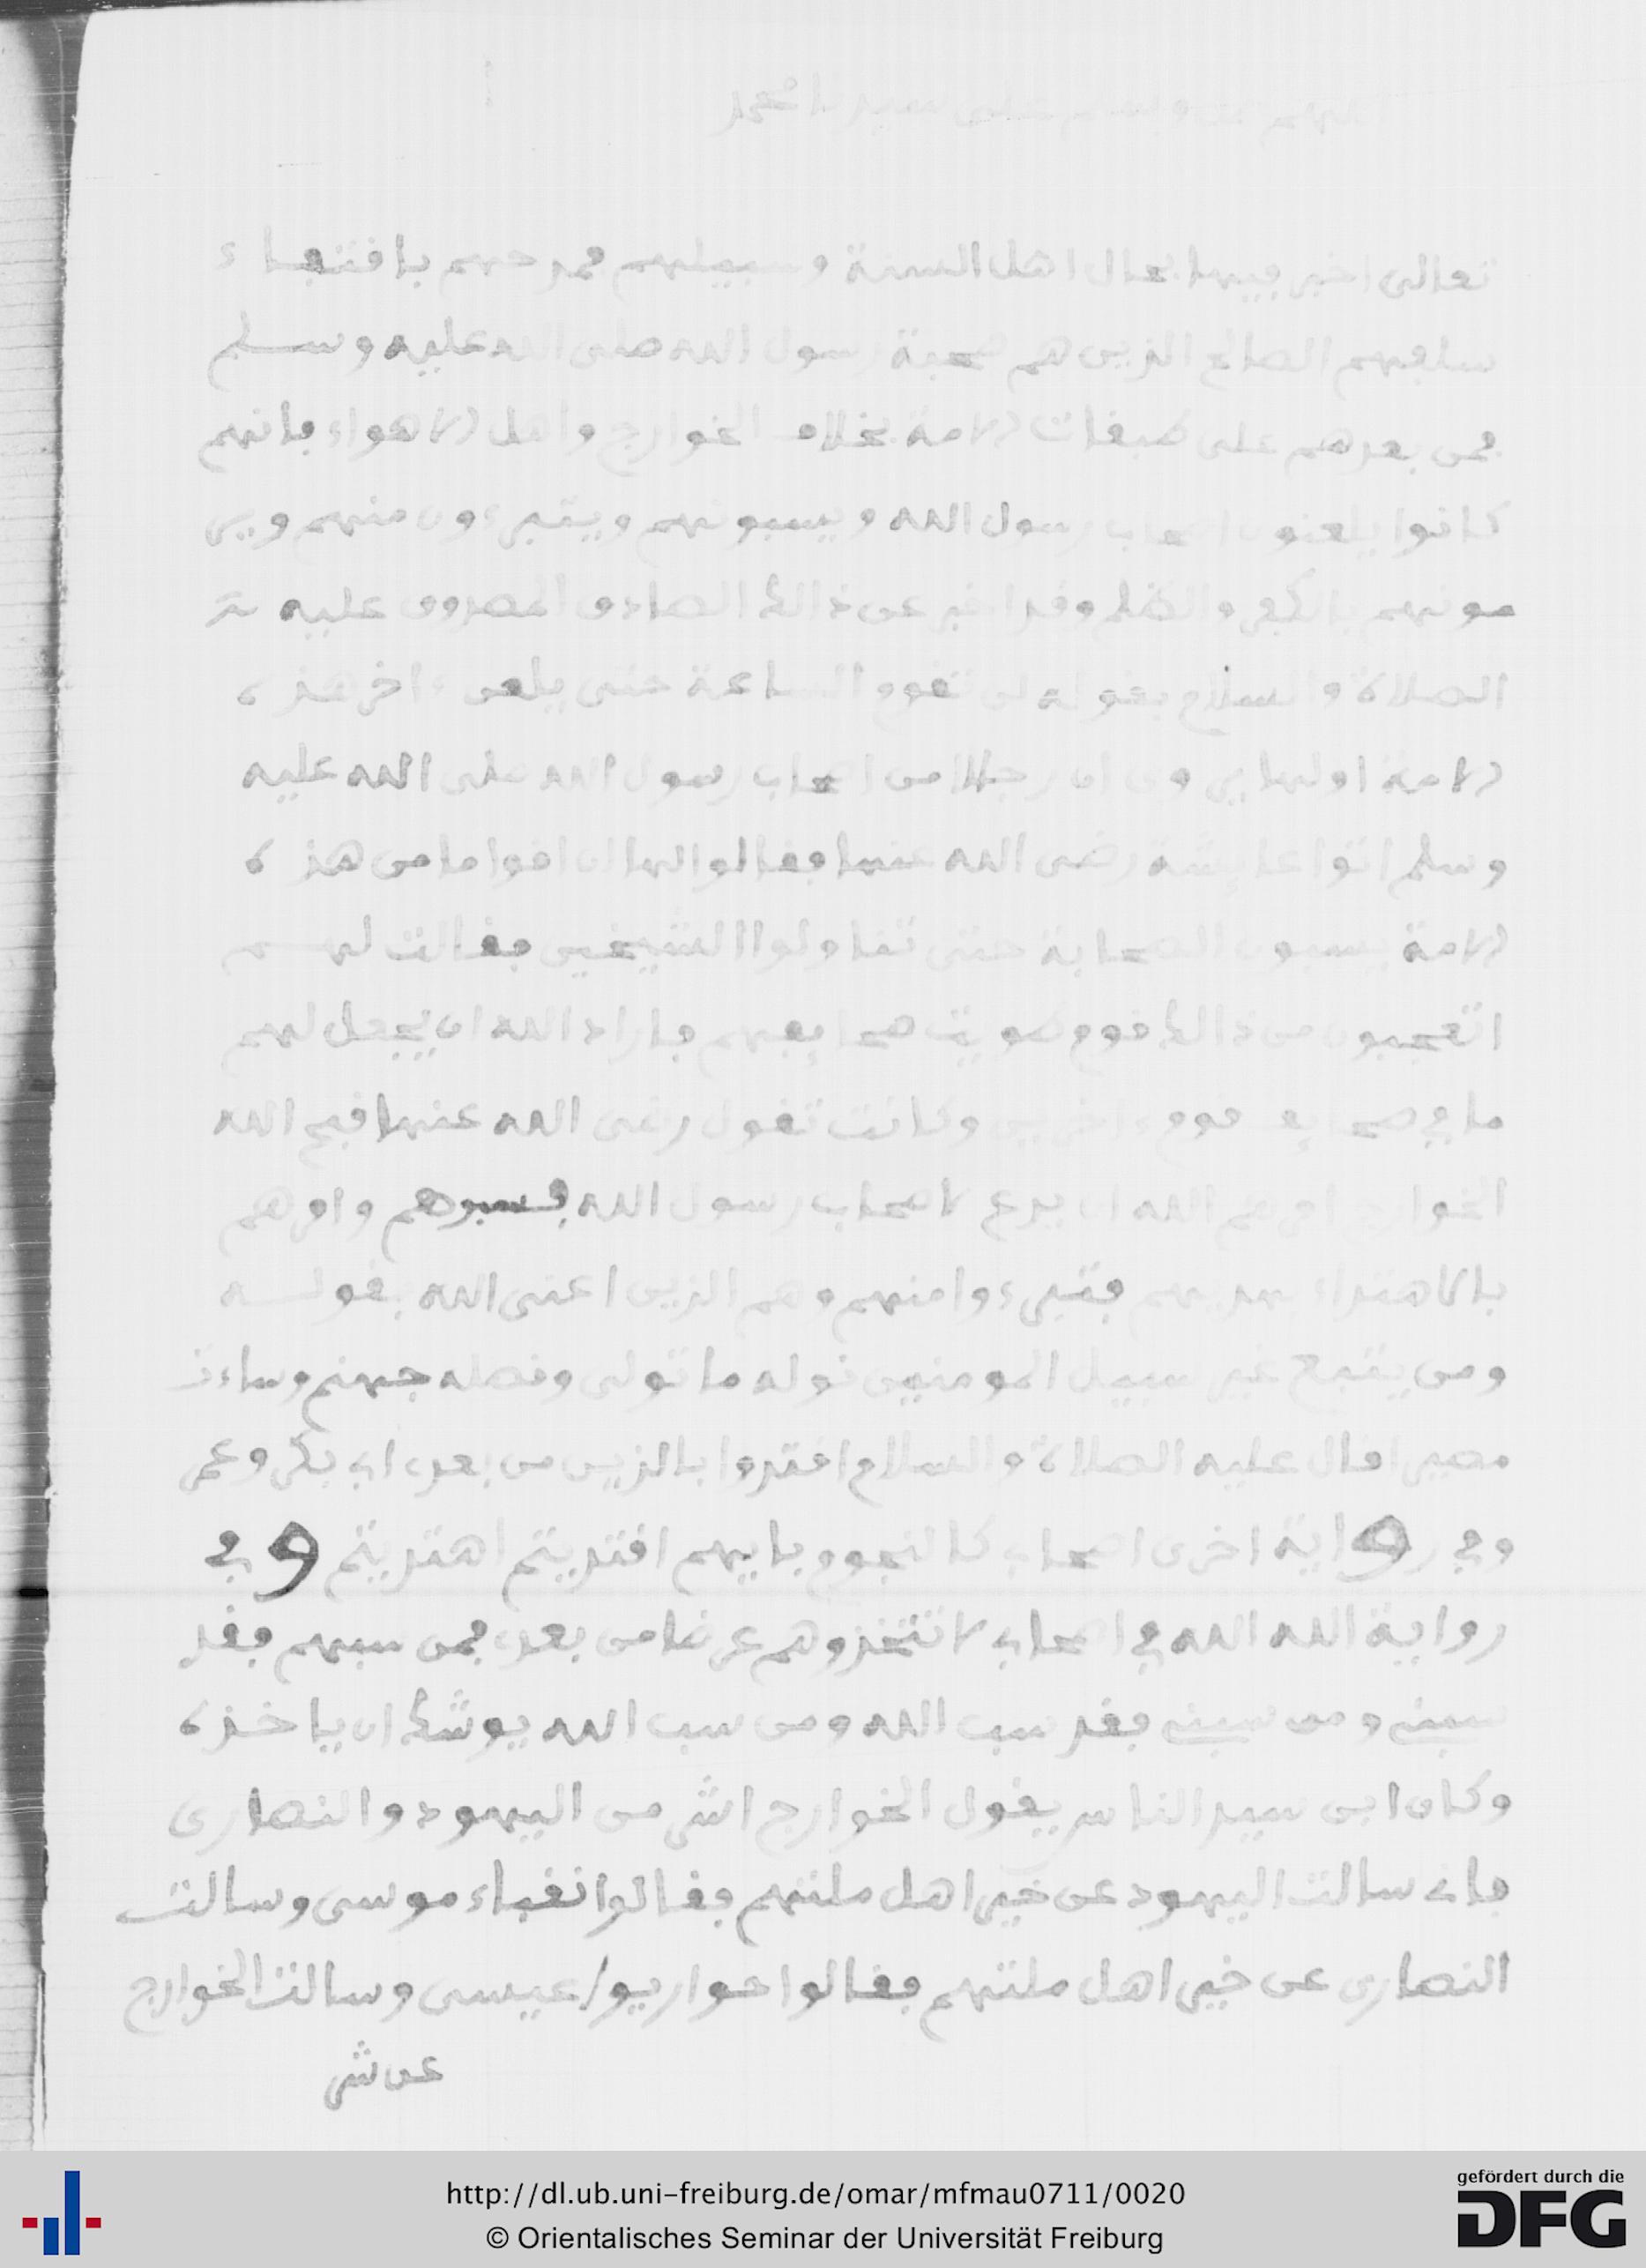 تعالى اخبر فيها بحال اهل السنة وسبيلهم فمدحهم باقتفاء
سلفهم الصالح الذين هم صحبة رسول الله صلى الله عليه وسلم
فمن بعدهم على طبقات الامة بخلاف الخوارج واهل الاهواء فانهم
كانوا يلعنون اصحاب رسول الله ويسبونهم ويتبرءون منهم وير
مونهم بالكفر والظلم وقد اخبر عن ذالك الصادق المصدوق عليه
الصلاة والسلام بقوله لن تقوم الساعة حتى يلعن ءاخر هذه
الامة اولها وان رجلا من اصحاب رسول الله صلى الله عليه
وسلم اتوا عايشة رضى الله عنها فقالوا لها ان اقواما من هذه
الامة يسبون الصحابة حتى تناولوا الشيخين فقالت لهم
اتعجبون من ذالك قوم طويت صحايفهم فاراد الله ان يجعل لهم
ما في صحايف قوم ءاخرين وكانت تقول رضى الله عنها قبح الله
الخوارج امرهم الله ان يدع لاصحاب رسول الله فسبوهم وامرهم
بالاهتداء بهديهم فتبرءوا منهم وهم الذين اعنى الله بقوله
ومن يتبع غير سبيل المومنين نوله ما تولى ونصله جهنم وساءت
مصيرا قال عليه الصلاة والسلام اقتدوا بالذين من بعدي ابي بكر وعمر
وفي رواية اخرى اصحابي كالنجوم بايهم اقتديتم اهتديتم وفي
رواية الله الله في اصحابي لا تتخذوهم غرضا من بعدي فمن سبهم فقد
سبني ومن سبني فقد سب الله ومن سب الله يوشك ان ياخذه
وكان ابن سيد الناس يقول الخوارج اشر من اليهود والنصارى
فاني سالت اليهود عن خير اهل ملتهم فقالوا نقباء موسى وسالت
النصارى عن خير اهل ملتهم فقالوا حواريو عيسى وسالت الخوارج
عن شر
http://dl.ub.uni-freiburg.de/omar/mfmau0711/0020
© Orientalisches Seminar der Universität Freiburg
gefördert durch die
DFG